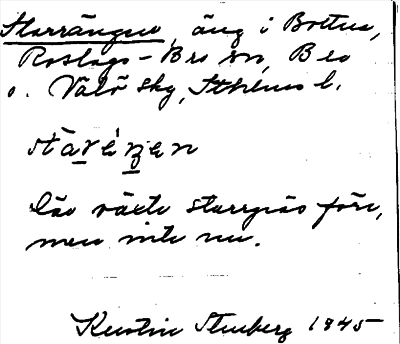 Starrängen, äng i Boltna,
Roslags-Bro sn, Bro
o. Väddö skg, Sthlms l.
stàréŋen
där växte starrgräs förr,
men inte nu.
Kerstin Stenberg 1945